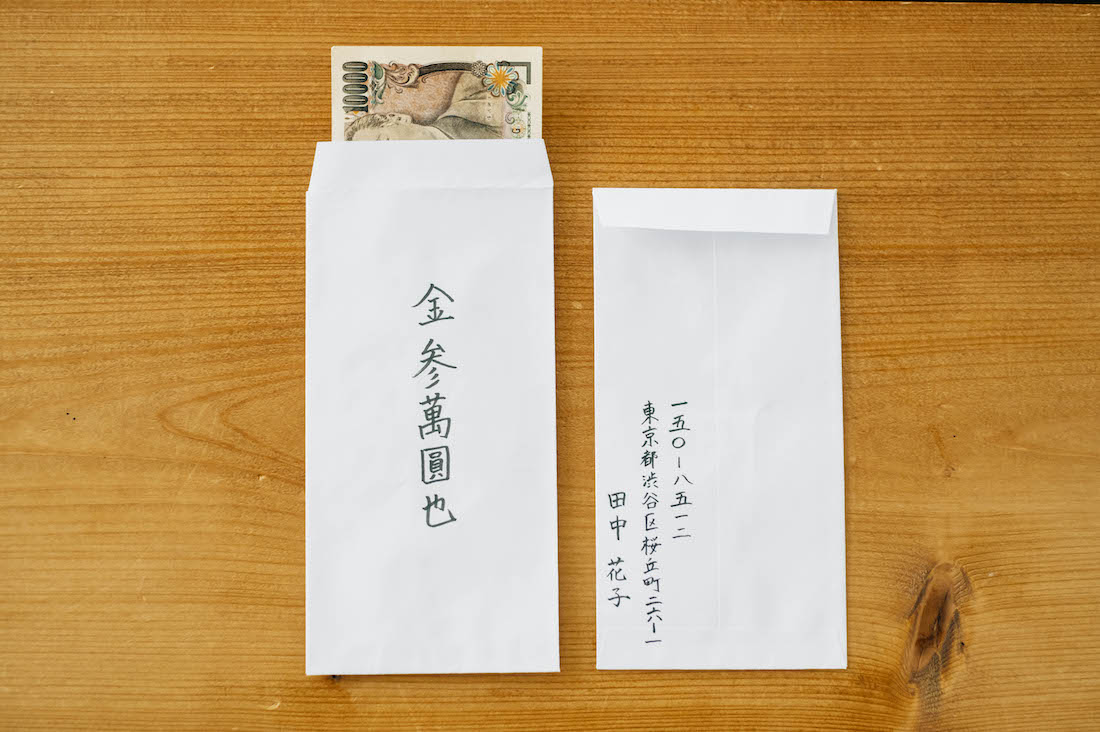 10000
金参萬圓也
一五〇ー八五一二
東京都渋谷区桜丘町二六ー一
田中 花子